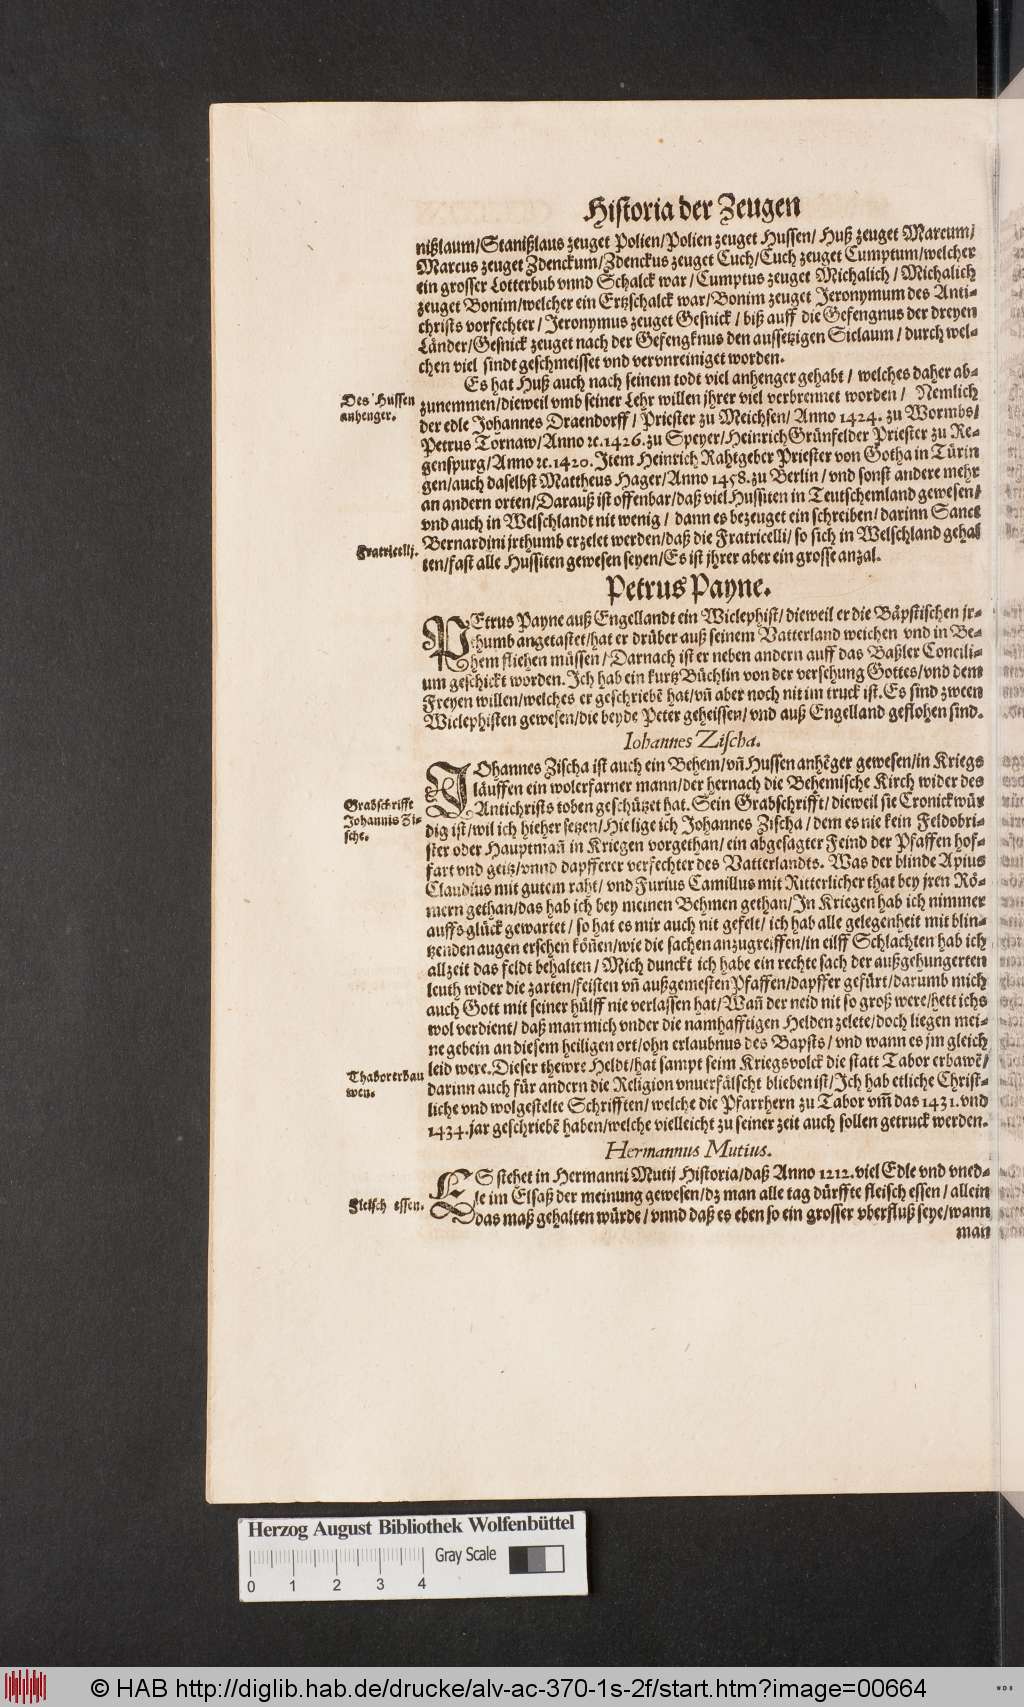 Historia der Zeugen
nißlaum/Stanißlaus zeuget Polien/Polien zeuget Hussen/ Huß zeuget Marcum/
Marcus zeuget Zdenckum/Zdenckus zeuget Cuch/Cuch zeuget Cumptum/welcher
ein grosser Lotterbub vnnd Schalck war/Cumptus zeuget Michalich/Michalich
zeuget Bonim/welcher ein Ertzschalck war/Bonim zeuget Jeronymum des Anti-
christs vorfechter/Jeronymus zeuget Gesnick/ biß auff die Gefengnus der dreyen
Länder/Gesnick zeuget nach der Gefengknus den aussetzigen Siclaum/ durch wel-
chen viel sindt geschmeisset vnd vervnreiniget worden.
Es hat Huß auch nach seinem todt viel anhenger gehabt/ welches daher ab-
Des Hussen
anhenger.
zunemmen/dieweil vmb seiner Lehr willen jhrer viel verbrennet worden/ Nemlich
der edle Johannes Draendorff/ Priester zu Meichsen/Anno 1424. zu Wormbs/
Petrus Tornaw/Anno ꝛc. 1426. zu Speyer/Heinrich Grünfelder Priester zu Re-
genspurg/Anno ꝛc. 1420. Item Heinrich Rahtgeber Priester von Gotha in Türin
gen/auch daselbst Mattheus Hager/Anno 1458. zu Berlin/vnd sonst andere mehr
an andern orten/Darauß ist offenbar/daß viel Hussiten in Teutschemland gewesen/
vnd auch in Welschlandt nit wenig/ dann es bezeuget ein schreiben/darinn Sanct
Bernardini jrthumb erzelet werden/daß die Fratricelli/so sich in Welschland gehal
Fratricellj.
ten/fast alle Hussiten gewesen seyen/Es ist jhrer aber ein grosse anzal.
Petrus Payne.
PEtrus Payne auß Engellandt ein Wiclephist/dieweil er die Bäpstischen jr-
thumb angetastet/hat er drüber auß seinem Vatterland weichen vnd in Be-
hem fliehen müssen/Darnach ist er neben andern auff das Baßler Concili-
um geschickt worden. Ich hab ein kurtz Büchlin von der versehung Gottes/vnd dem
Freyen willen/welches er geschriebē hat/vñ aber noch nit im truck ist. Es sind zween
Wiclephisten gewesen/die beyde Peter geheissen/vnd auß Engelland geflohen sind.
Iohannes Zischa.
JOhannes Zischa ist auch ein Behem/vñ Hussen anhēger gewesen/in Kriegs
läuffen ein wolerfarner mann/der hernach die Behemische Kirch wider des
Antichrists toben geschützet hat. Sein Grabschrifft/dieweil sie Cronick wür
Grabschrifft
Johannis Zi-
sche.
dig ist/wil ich hieher setzen/Hie lige ich Johannes Zischa/dem es nie kein Feldobri-
ster oder Hauptmañ in Kriegen vorgethan/ein abgesagter Feind der Pfaffen hof-
fart vnd geitz/vnnd dapfferer verfechter des Vatterlandts. Was der blinde Apius
Claudius mit gutem raht/ vnd Furius Camillus mit Ritterlicher that bey jren Rö-
mern gethan/das hab ich bey meinen Behmen gethan/In Kriegen hab ich nimmer
auffs glück gewartet/ so hat es mir auch nit gefelt/ ich hab alle gelegenheit mit blin-
tzenden augen ersehen köñen/wie die sachen anzugreiffen/in eilff Schlachten hab ich
allzeit das feldt behalten/Mich dunckt ich habe ein rechte sach der außgehungerten
leuth wider die zarten/feisten vñ außgemesten Pfaffen/dapffer gefürt/darumb mich
auch Gott mit seiner hülff nie verlassen hat/Wañ der neid nit so groß were/hett ichs
wol verdient/ daß man mich vnder die namhafftigen Helden zelete/doch liegen mei-
ne gebein an diesem heiligen ort/ohn erlaubnus des Bapsts/ vnd wann es jm gleich
leid were. Dieser thewre Heldt/hat sampt seim Kriegsvolck die statt Tabor erbawē/
Thabor erbau
wen.
darinn auch für andern die Religion vnuerfälscht blieben ist/Ich hab etliche Christ-
liche vnd wolgestelte Schrifften/welche die Pfarrhern zu Tabor vm̄ das 1431. vnd
1434. jar geschriebē haben/welche vielleicht zu seiner zeit auch sollen getruck werden.
Hermannus Mutius.
ES stehet in Hermanni Mutij Historia/daß Anno 1212. viel Edle vnd vned-
le im Elsaß der meinung gewesen/dz man alle tag dürffte fleisch essen/allein
Fleisch essen.
das maß gehalten würde/vnnd daß es eben so ein grosser vberfluß seye/wann
man
Herzog August Bibliothek Wolfenbüttel
Gray Scale
0 1 2 3 4
© HAB http://diglib.hab.de/drucke/alv-ac-370-1s-2f/start.htm?image=00664